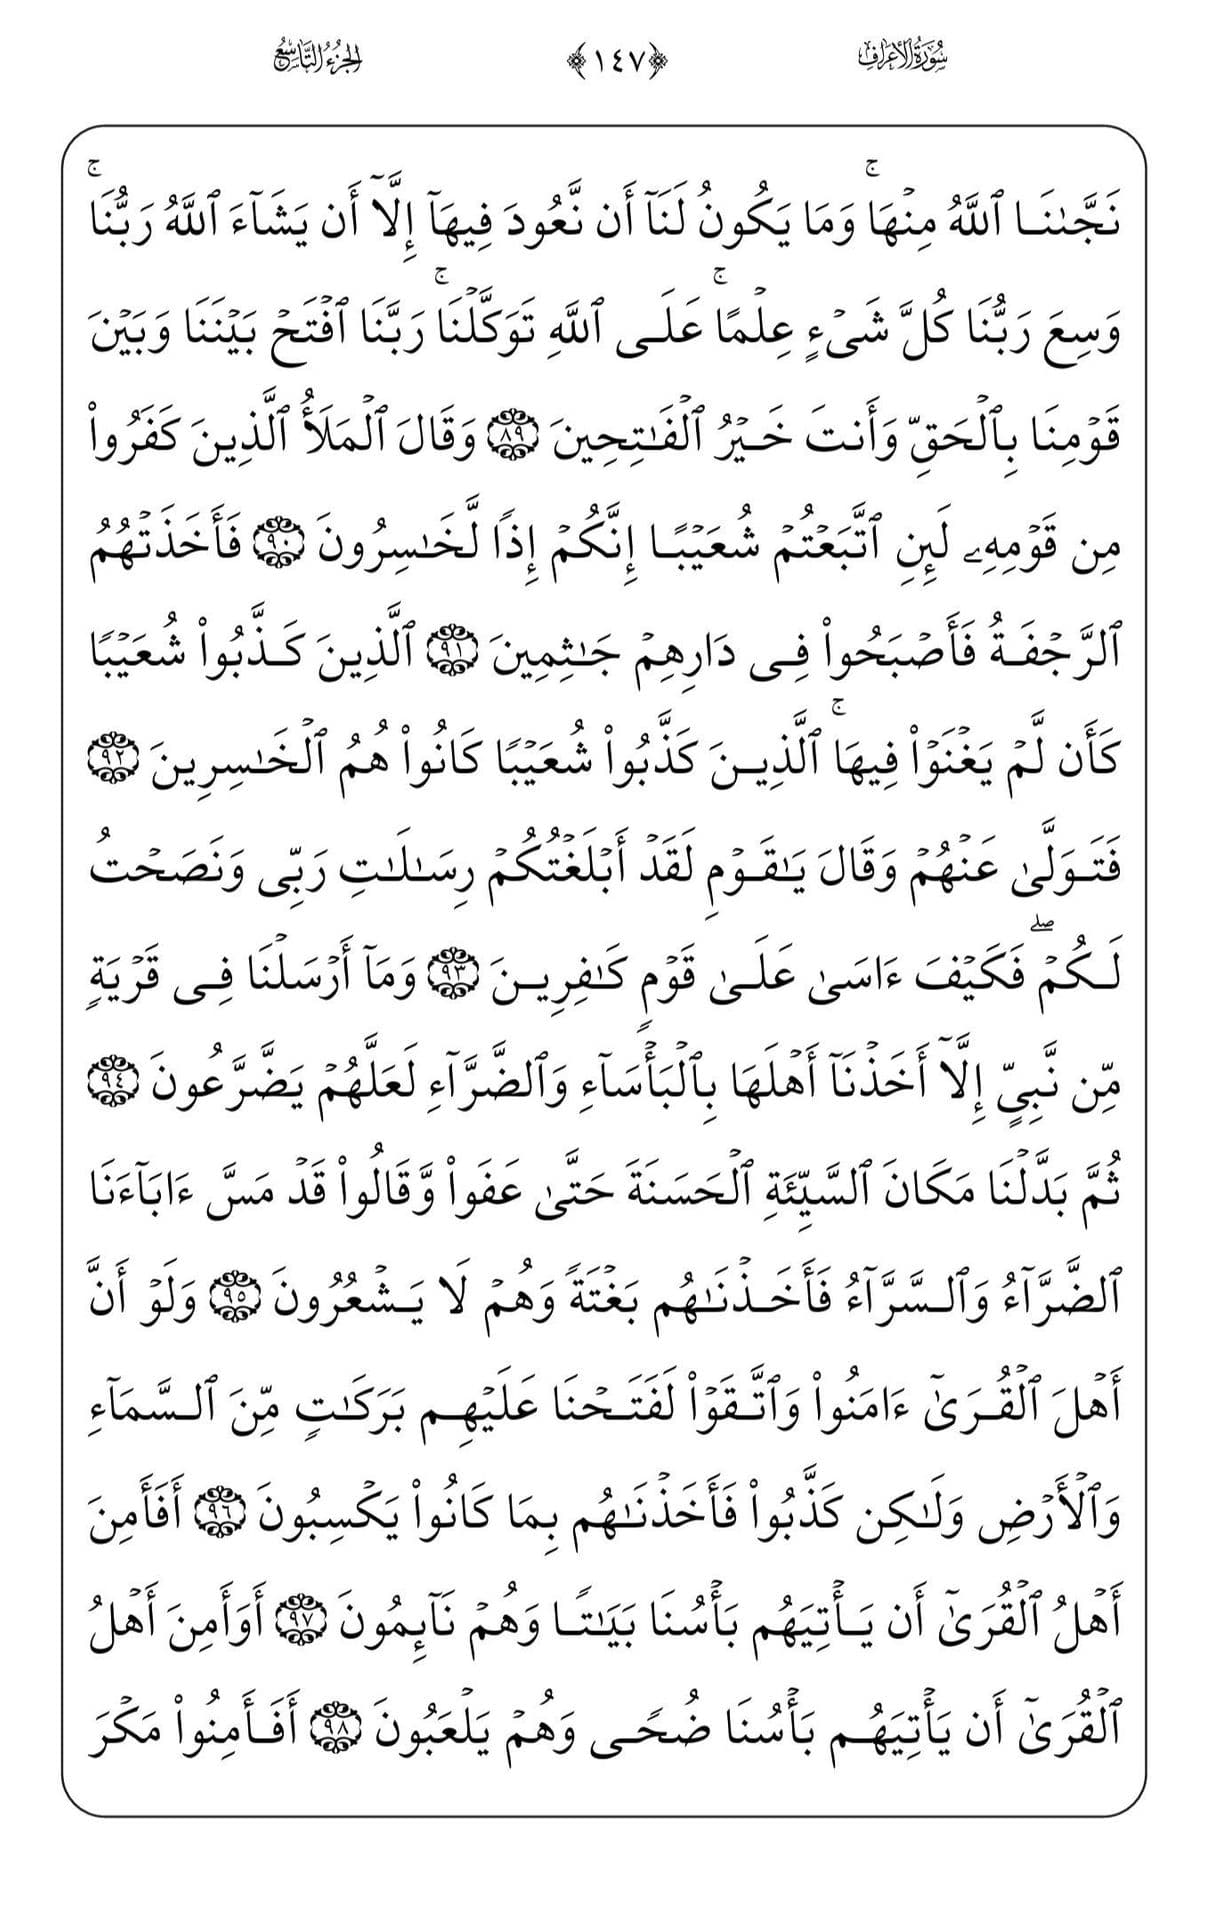 سُورَةُ الأَعْرَافِ ﴿١٤٧﴾ الجُزْءُ التَّاسِعُ
نَجَّىٰنَا ٱللَّهُ مِنْهَا ۚ وَمَا يَكُونُ لَنَآ أَن نَّعُودَ فِيهَآ إِلَّآ أَن يَشَآءَ ٱللَّهُ رَبُّنَا ۚ
وَسِعَ رَبُّنَا كُلَّ شَىْءٍ عِلْمًا ۚ عَلَى ٱللَّهِ تَوَكَّلْنَا ۚ رَبَّنَا ٱفْتَحْ بَيْنَنَا وَبَيْنَ
قَوْمِنَا بِٱلْحَقِّ وَأَنتَ خَيْرُ ٱلْفَـٰتِحِينَ ٨٩ وَقَالَ ٱلْمَلَأُ ٱلَّذِينَ كَفَرُوا۟
مِن قَوْمِهِۦ لَئِنِ ٱتَّبَعْتُمْ شُعَيْبًا إِنَّكُمْ إِذًا لَّخَـٰسِرُونَ ٩٠ فَأَخَذَتْهُمُ
ٱلرَّجْفَةُ فَأَصْبَحُوا۟ فِى دَارِهِمْ جَـٰثِمِينَ ٩١ ٱلَّذِينَ كَذَّبُوا۟ شُعَيْبًا
كَأَن لَّمْ يَغْنَوْا۟ فِيهَا ۚ ٱلَّذِينَ كَذَّبُوا۟ شُعَيْبًا كَانُوا۟ هُمُ ٱلْخَـٰسِرِينَ ٩٢
فَتَوَلَّىٰ عَنْهُمْ وَقَالَ يَـٰقَوْمِ لَقَدْ أَبْلَغْتُكُمْ رِسَـٰلَـٰتِ رَبِّى وَنَصَحْتُ
لَكُمْ ۖ فَكَيْفَ ءَاسَىٰ عَلَىٰ قَوْمٍ كَـٰفِرِينَ ٩٣ وَمَآ أَرْسَلْنَا فِى قَرْيَةٍ
مِّن نَّبِىٍّ إِلَّآ أَخَذْنَآ أَهْلَهَا بِٱلْبَأْسَآءِ وَٱلضَّرَّآءِ لَعَلَّهُمْ يَضَّرَّعُونَ ٩٤
ثُمَّ بَدَّلْنَا مَكَانَ ٱلسَّيِّئَةِ ٱلْحَسَنَةَ حَتَّىٰ عَفَوا۟ وَّقَالُوا۟ قَدْ مَسَّ ءَابَآءَنَا
ٱلضَّرَّآءُ وَٱلسَّرَّآءُ فَأَخَذْنَـٰهُم بَغْتَةً وَهُمْ لَا يَشْعُرُونَ ٩٥ وَلَوْ أَنَّ
أَهْلَ ٱلْقُرَىٰٓ ءَامَنُوا۟ وَٱتَّقَوْا۟ لَفَتَحْنَا عَلَيْهِم بَرَكَـٰتٍ مِّنَ ٱلسَّمَآءِ
وَٱلْأَرْضِ وَلَـٰكِن كَذَّبُوا۟ فَأَخَذْنَـٰهُم بِمَا كَانُوا۟ يَكْسِبُونَ ٩٦ أَفَأَمِنَ
أَهْلُ ٱلْقُرَىٰٓ أَن يَأْتِيَهُم بَأْسُنَا بَيَـٰتًا وَهُمْ نَآئِمُونَ ٩٧ أَوَأَمِنَ أَهْلُ
ٱلْقُرَىٰٓ أَن يَأْتِيَهُم بَأْسُنَا ضُحًى وَهُمْ يَلْعَبُونَ ٩٨ أَفَأَمِنُوا۟ مَكْرَ